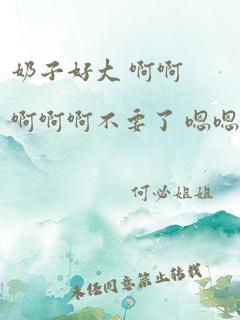 奶子好大 啊啊
啊啊啊不要了 嗯嗯
何必姐姐
未经同意禁止转载